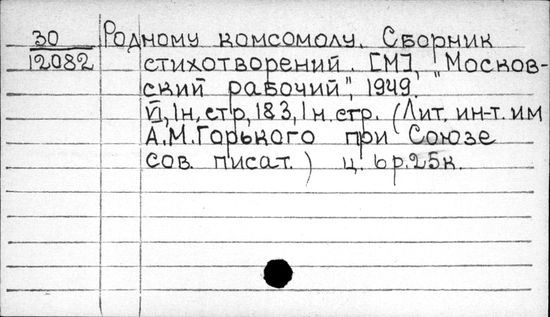 30 Родному комсомолу. Сборник
12082 стихотворений. [М], "Москов-
ский рабочий", 1949.
VI, 1н. стр, 183, 1н. стр. (Лит. ин-т. им
А.М. Горького при Союзе
сов. писат.) ц. 6р.25к.